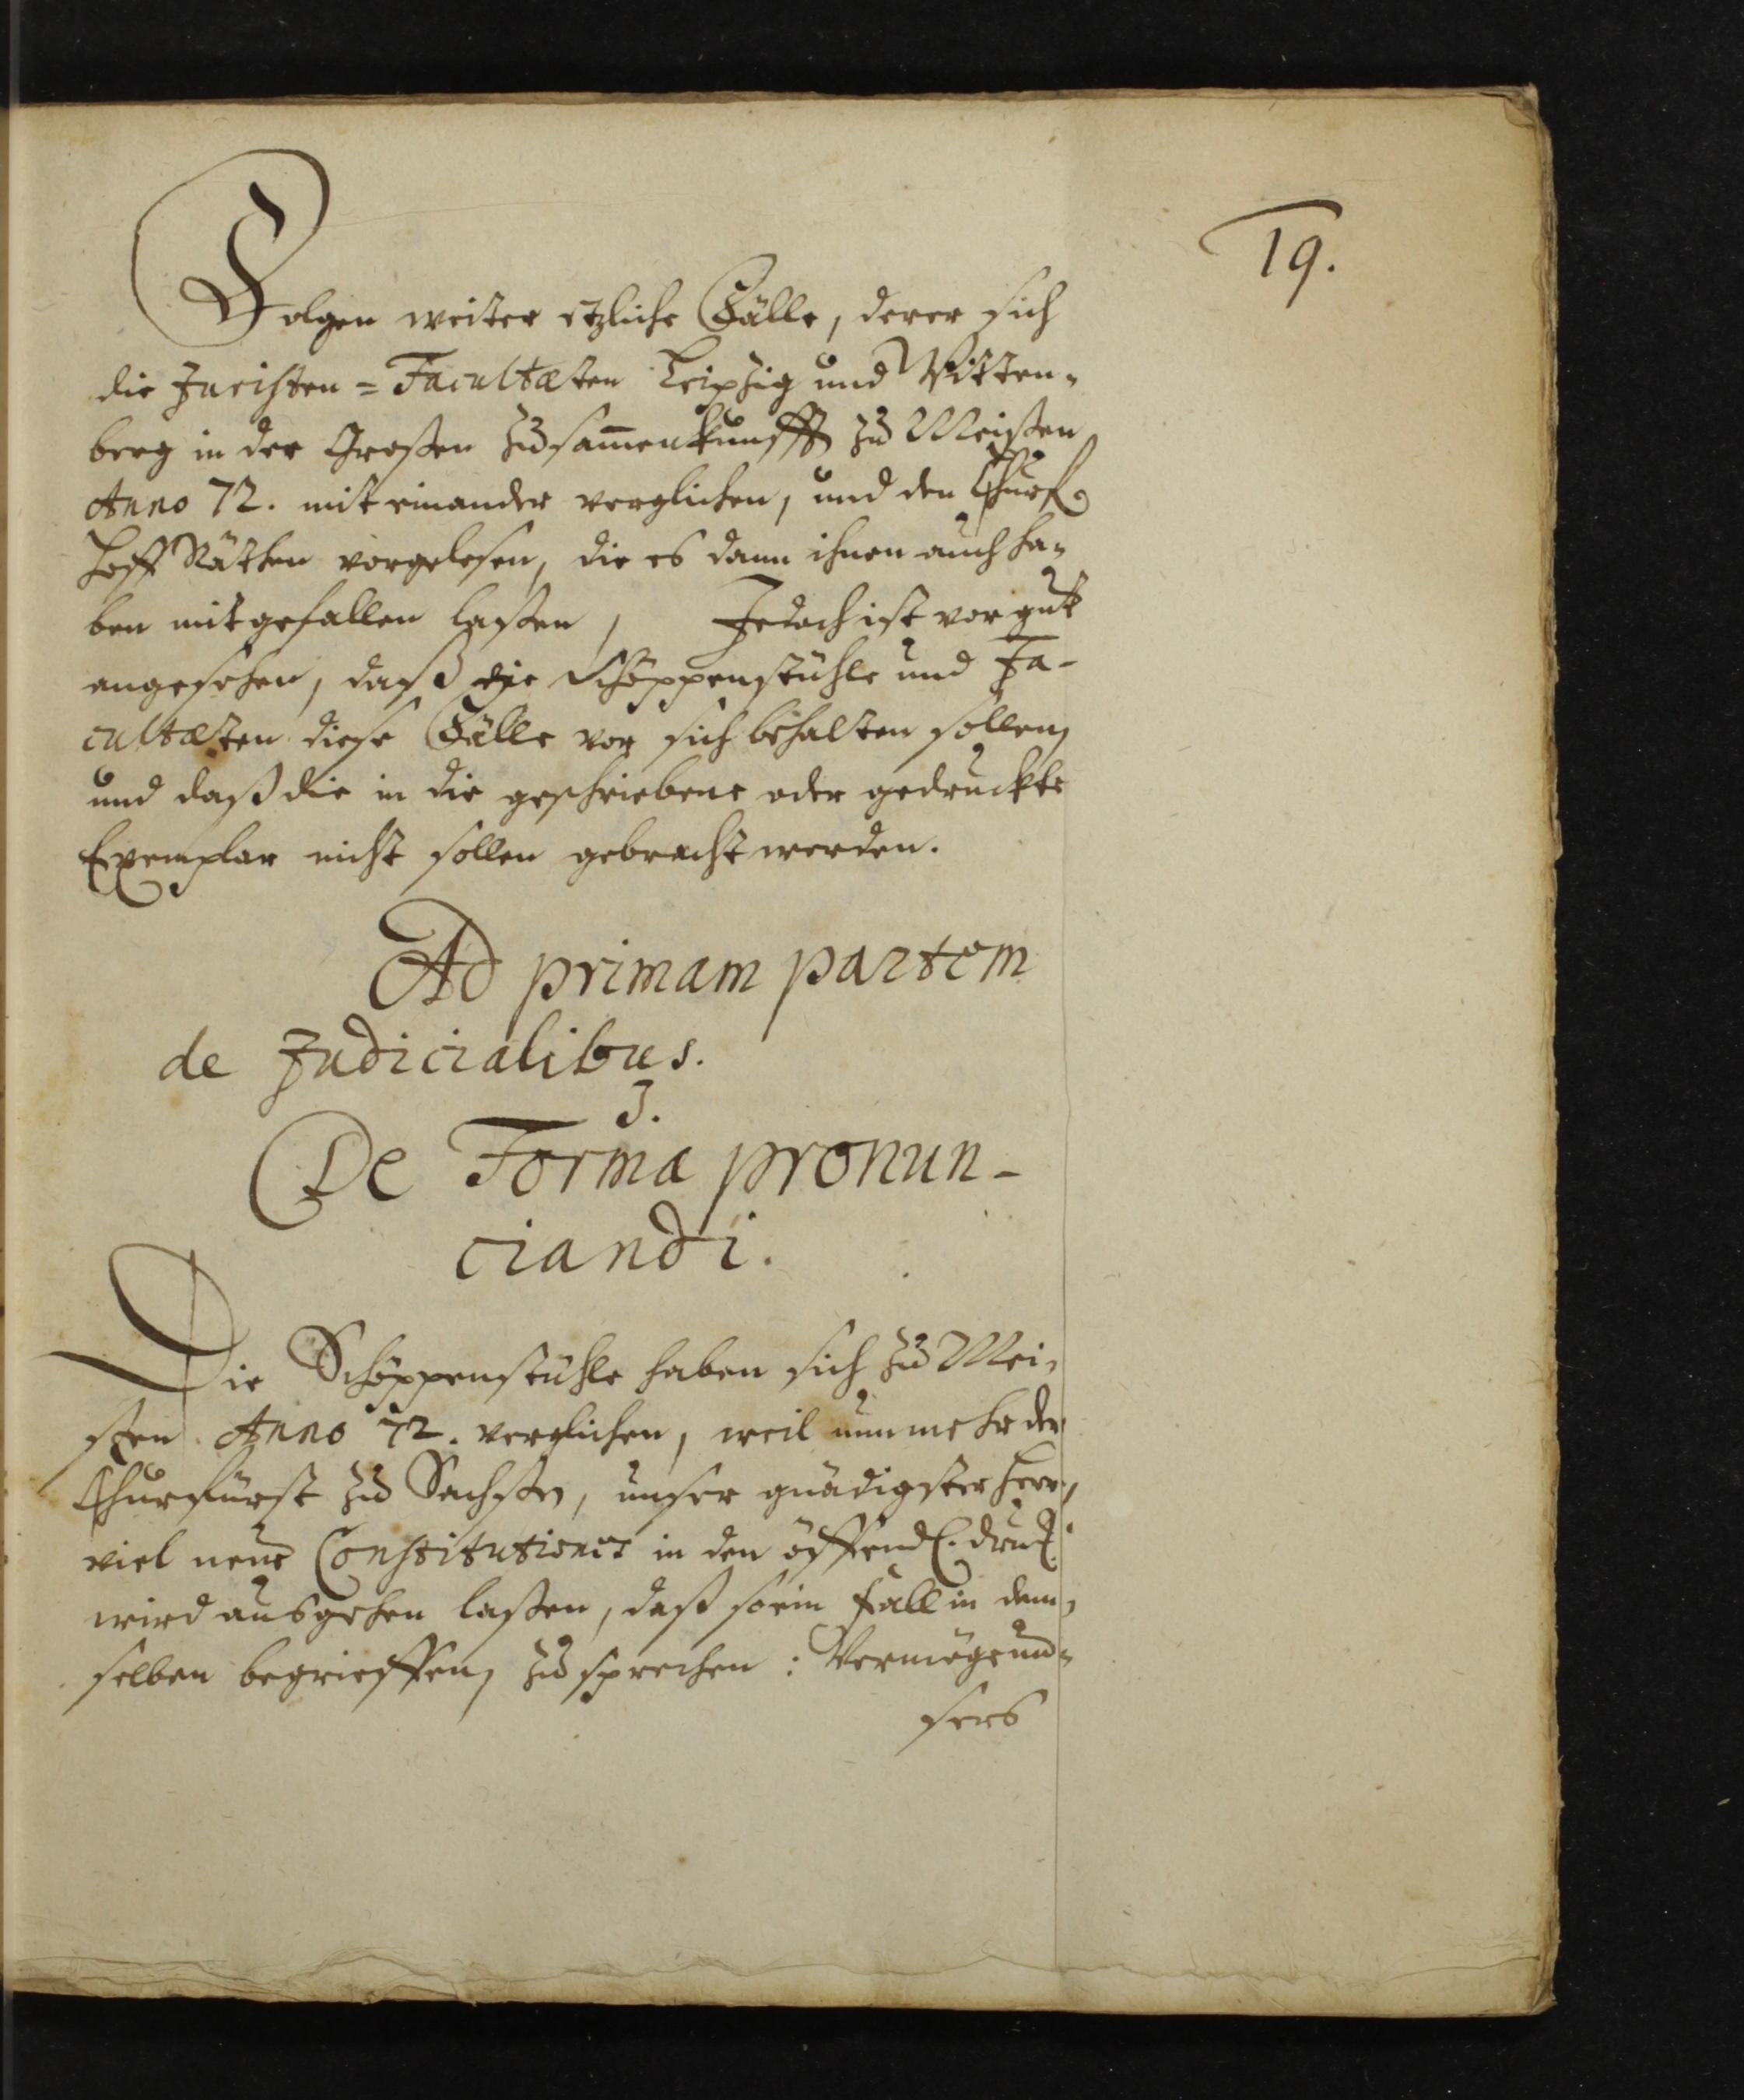 19.
Folgen weiter etzliche Fälle, derer sich
die Juristen=Facultæten Leipzig und Witten-
berg in der Großen Zusam̄enkunfft zu Meißen
Anno 72. mit einander verglichen, und den Churf.
Hoff Räthen vorgelesen, die es dann ihnen auch ha-
ben mit gefallen laßen, Jedoch ist vor gut
angesehen, daß die Schöppenstühle und Fa-
cultæten diese Fälle vor sich behalten sollen,
und daß die in die geschriebene oder gedruckte
Exemplar nicht sollen gebracht werden.
Ad primam partem
de Judicialibus.
J.
De Forma pronun-
ciandi.
Die Schöppenstühle haben sich zu Mei-
ßen Anno 72. verglichen, weil nunmehr der
Churfürst zu Sachßen, unser gnädigster Herr,
viel neue Constitutiones in den öffendl. druck
wird ausgehen laßen, daß so ein Fall in dem-
selben begrieffen, zu sprechen: Vermöge un-
sers